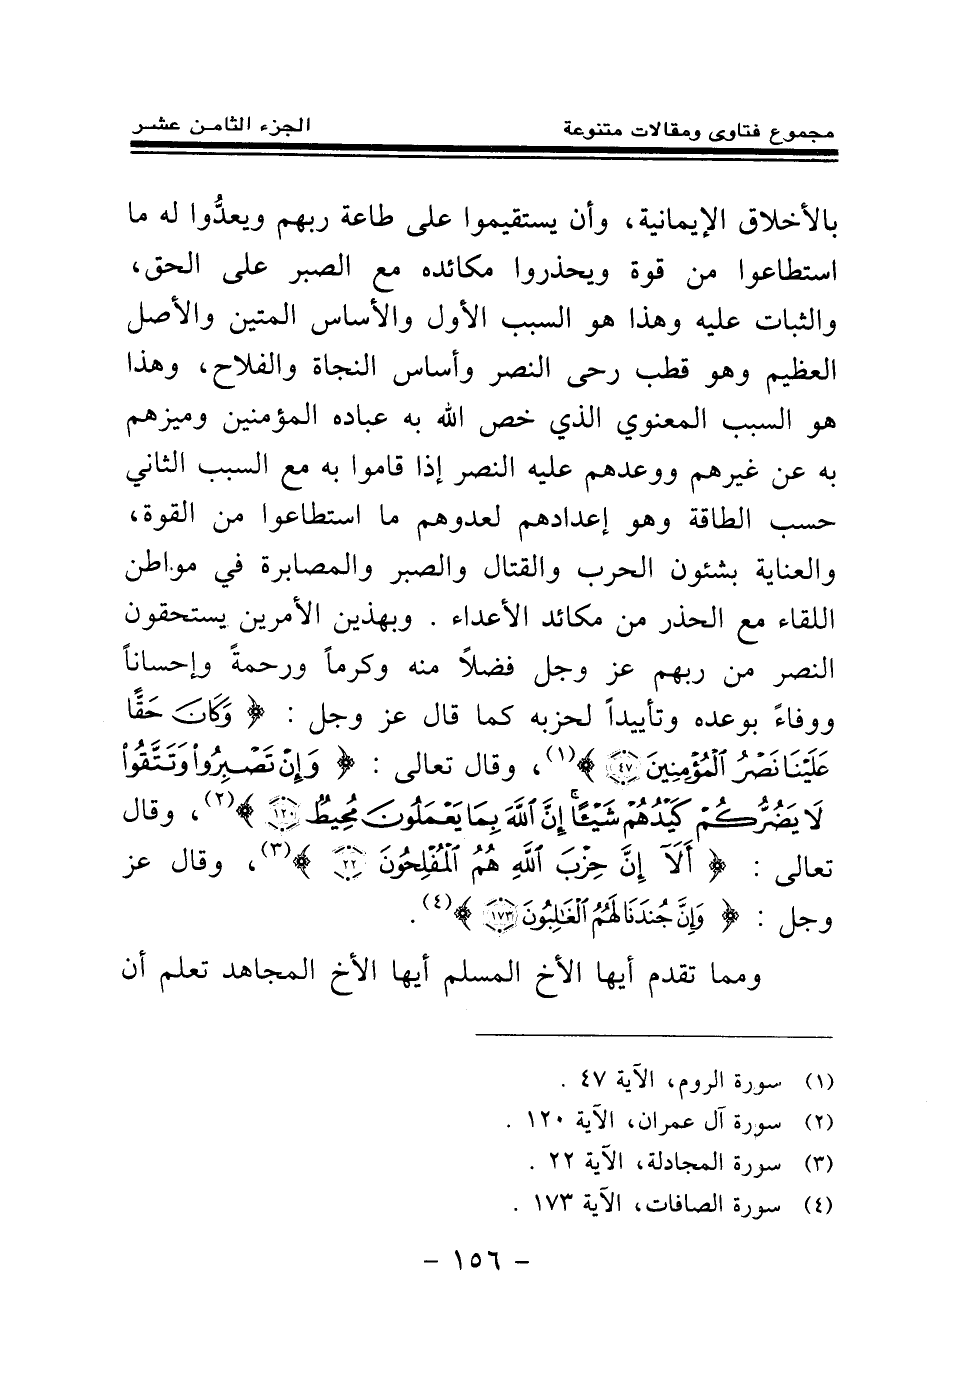 مجموع فتاوى ومقالات متنوعة الجزء الثامن عشر
بالأخلاق الإيمانية، وأن يستقيموا على طاعة ربهم ويعدُّوا له ما
استطاعوا من قوة ويحذروا مكائده مع الصبر على الحق،
والثبات عليه وهذا هو السبب الأول والأساس المتين والأصل
العظيم وهو قطب رحى النصر وأساس النجاة والفلاح، وهذا
هو السبب المعنوي الذي خص الله به عباده المؤمنين وميزهم
به عن غيرهم ووعدهم عليه النصر إذا قاموا به مع السبب الثاني
حسب الطاقة وهو إعدادهم لعدوهم ما استطاعوا من القوة،
والعناية بشئون الحرب والقتال والصبر والمصابرة في مواطن
اللقاء مع الحذر من مكائد الأعداء . وبهذين الأمرين يستحقون
النصر من ربهم عز وجل فضلاً منه وكرماً ورحمةً وإحساناً
ووفاءً بوعده وتأييداً لحزبه كما قال عز وجل : ﴿ وَكَانَ حَقًّا
عَلَيْنَا نَصْرُ الْمُؤْمِنِينَ ٤٧ ﴾(١)، وقال تعالى : ﴿ وَإِن تَصْبِرُوا وَتَتَّقُوا
لَا يَضُرُّكُمْ كَيْدُهُمْ شَيْئًا إِنَّ اللَّهَ بِمَا يَعْمَلُونَ مُحِيطٌ ١٢٠ ﴾(٢)، وقال
تعالى : ﴿ أَلَا إِنَّ حِزْبَ اللَّهِ هُمُ الْمُفْلِحُونَ ٢٢ ﴾(٣)، وقال عز
وجل : ﴿ وَإِنَّ جُندَنَا لَهُمُ الْغَالِبُونَ ١٧٣ ﴾(٤).
ومما تقدم أيها الأخ المسلم أيها الأخ المجاهد تعلم أن
(١) سورة الروم، الآية ٤٧ .
(٢) سورة آل عمران، الآية ١٢٠ .
(٣) سورة المجادلة، الآية ٢٢ .
(٤) سورة الصافات، الآية ١٧٣ .
- ١٥٦ -